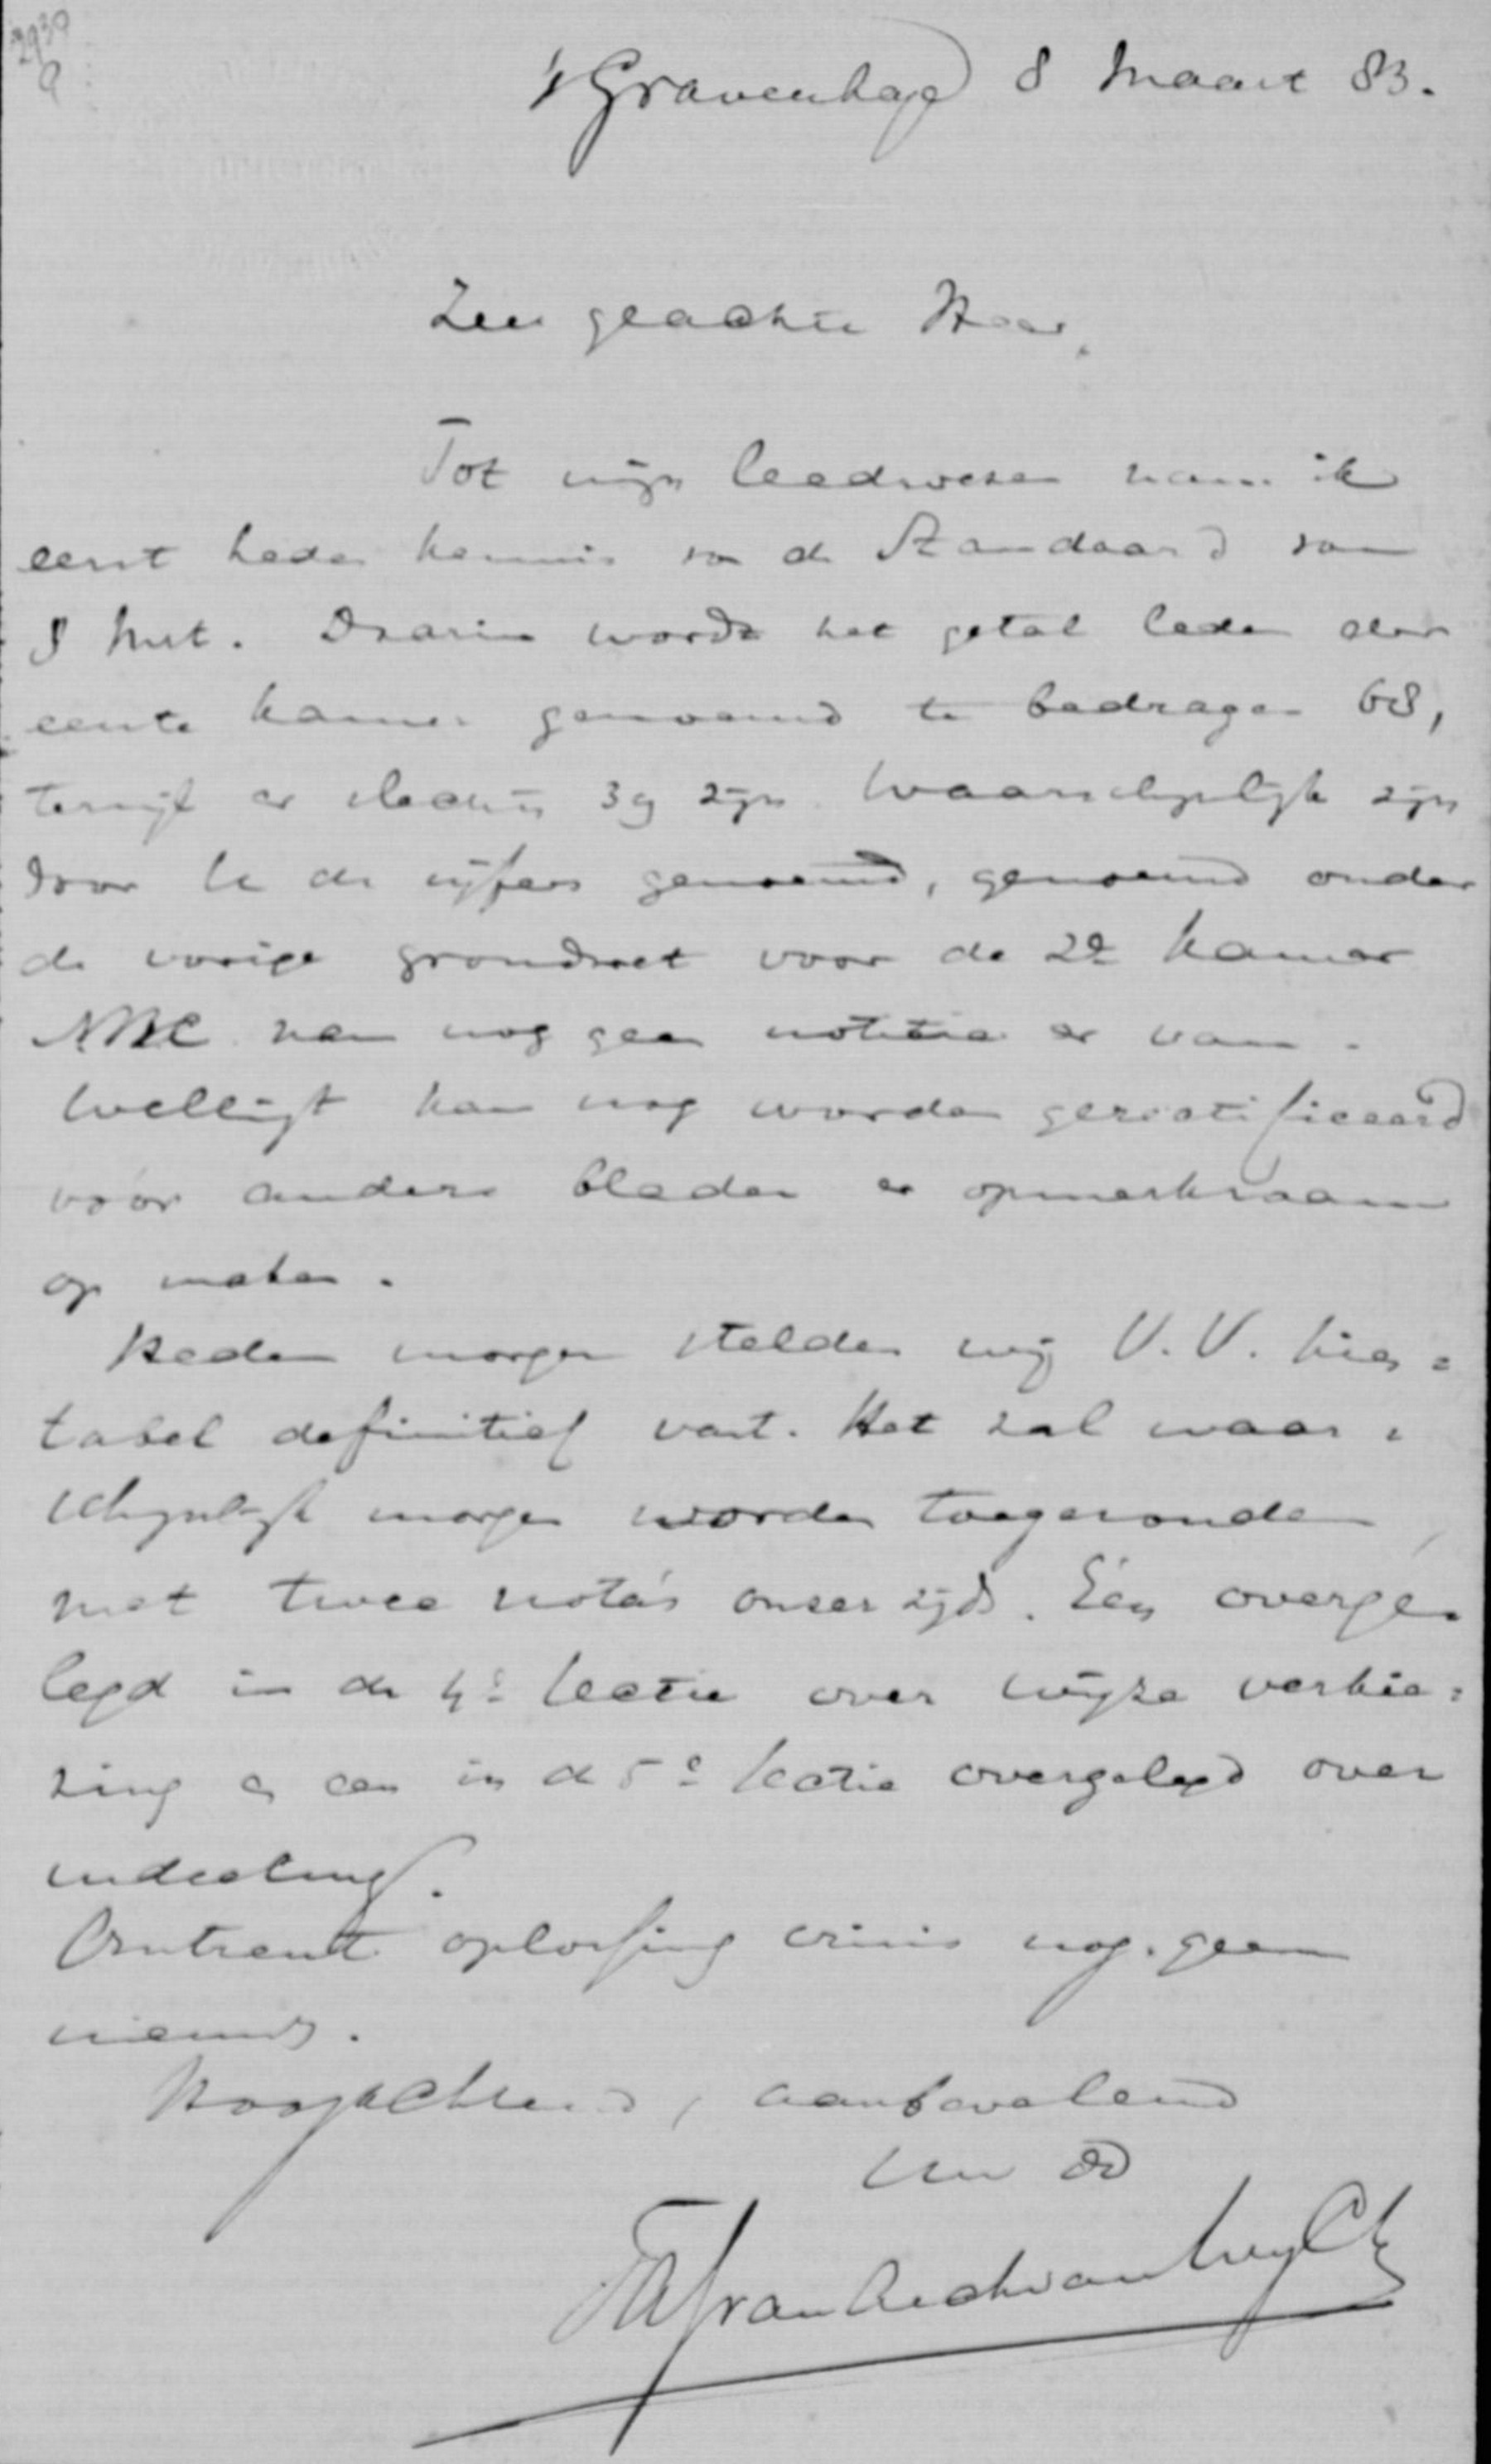 2939
a
's Gravenhage 8 Maart 83.
Zeer geachte Heer,
Tot mijn leedwezen nam ik
eerst heden kennis van de Standaard van
8 Mrt. Daarin wordt het getal leden der
eerste kamer genoemd te bedragen 68,
terwijl er slechts 39 zijn. Waarschijnlijk zijn
door de cijfers genoemd, genoemd onder
de vorige grondwet voor de 2e Kamer
NRC nam nog geen notitie er van.
Welligt kan nog worden gerectificeerd
vóór andere bladen er opmerkzaam
op maken.
Heden morgen stelden wij V.V. kies=
tabel definitief vast. Het zal waar=
schijnlijk morgen worden toegezonden,
met twee nota's onzerzijds. Één overge=
legd in de 4e sectie over wijze verkie=
zing en een in de 5e sectie overgelegd over
indeeling.
Omtrent oplossing crisis nog geen
nieuws.
Hoogachtend, aanbevelend
Uw